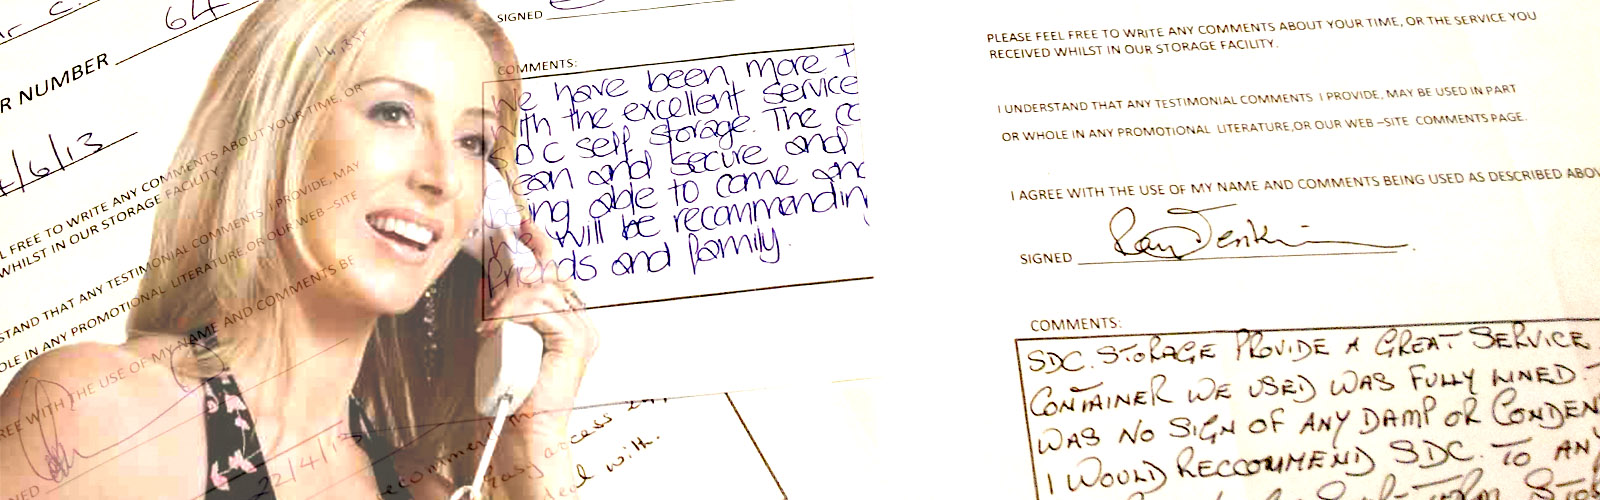 64
R NUMBER
/6/13
L FREE TO WRITE ANY COMMENTS ABOUT YOUR TIME, OR
WHILST IN OUR STORAGE FACILITY.
STAND THAT ANY TESTIMONIAL COMMENTS I PROVIDE, MAY
OLE IN ANY PROMOTIONAL LITERATURE OR OUR WEB-SITE
REE WITH THE USE OF MY NAME AND COMMENTS BE
NED
22/4/13
SIGNED
COMMENTS:
We have been more t
with the excellent service
SDC self storage. The cc
clean and secure and
being able to come and
We will be recommendin
friends and family.
easy access 24
deal with.
PLEASE FEEL FREE TO WRITE ANY COMMENTS ABOUT YOUR TIME, OR THE SERVICE YOU
RECEIVED WHILST IN OUR STORAGE FACILITY.
I UNDERSTAND THAT ANY TESTIMONIAL COMMENTS I PROVIDE, MAY BE USED IN PART
OR WHOLE IN ANY PROMOTIONAL LITERATURE, OR OUR WEB –SITE COMMENTS PAGE.
I AGREE WITH THE USE OF MY NAME AND COMMENTS BEING USED AS DESCRIBED ABOV
SIGNED Ray Jenkin
COMMENTS:
SDC. STORAGE PROVIDE A GREAT SERVICE.
CONTAINER WE USED WAS FULLY LINED.
WAS NO SIGN OF ANY DAMP OR CONDEN
I WOULD RECCOMMEND SDC. TO AN